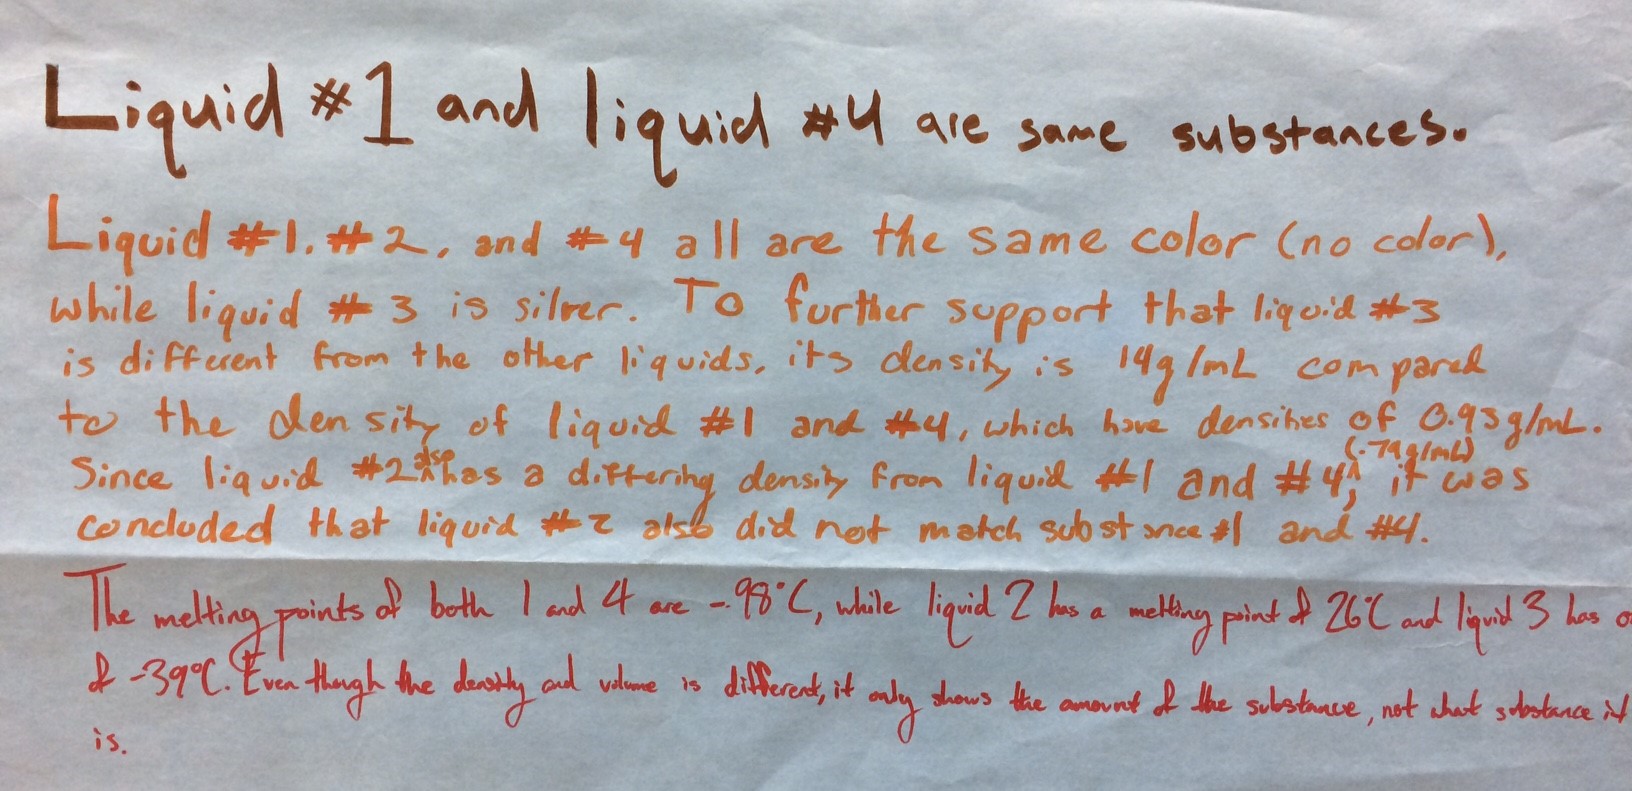 Liquid #1 and liquid #4 are same substances.
Liquid #1, #2, and #4 all are the same color (no color),
while liquid #3 is silver. To further support that liquid #3
is different from the other liquids, its density is 14g/mL compared
to the density of liquid #1 and #4, which have densities of 0.93g/mL.
Since liquid #2 also has a differing density from liquid #1 and #4 (.79g/mL), it was
concluded that liquid #2 also did not match substance #1 and #4.
The melting points of both 1 and 4 are -98°C, while liquid 2 has a melting point of 26°C and liquid 3 has
of -39°C. Even though the density and volume is different, it only shows the amount of the substance, not what substance it
is.